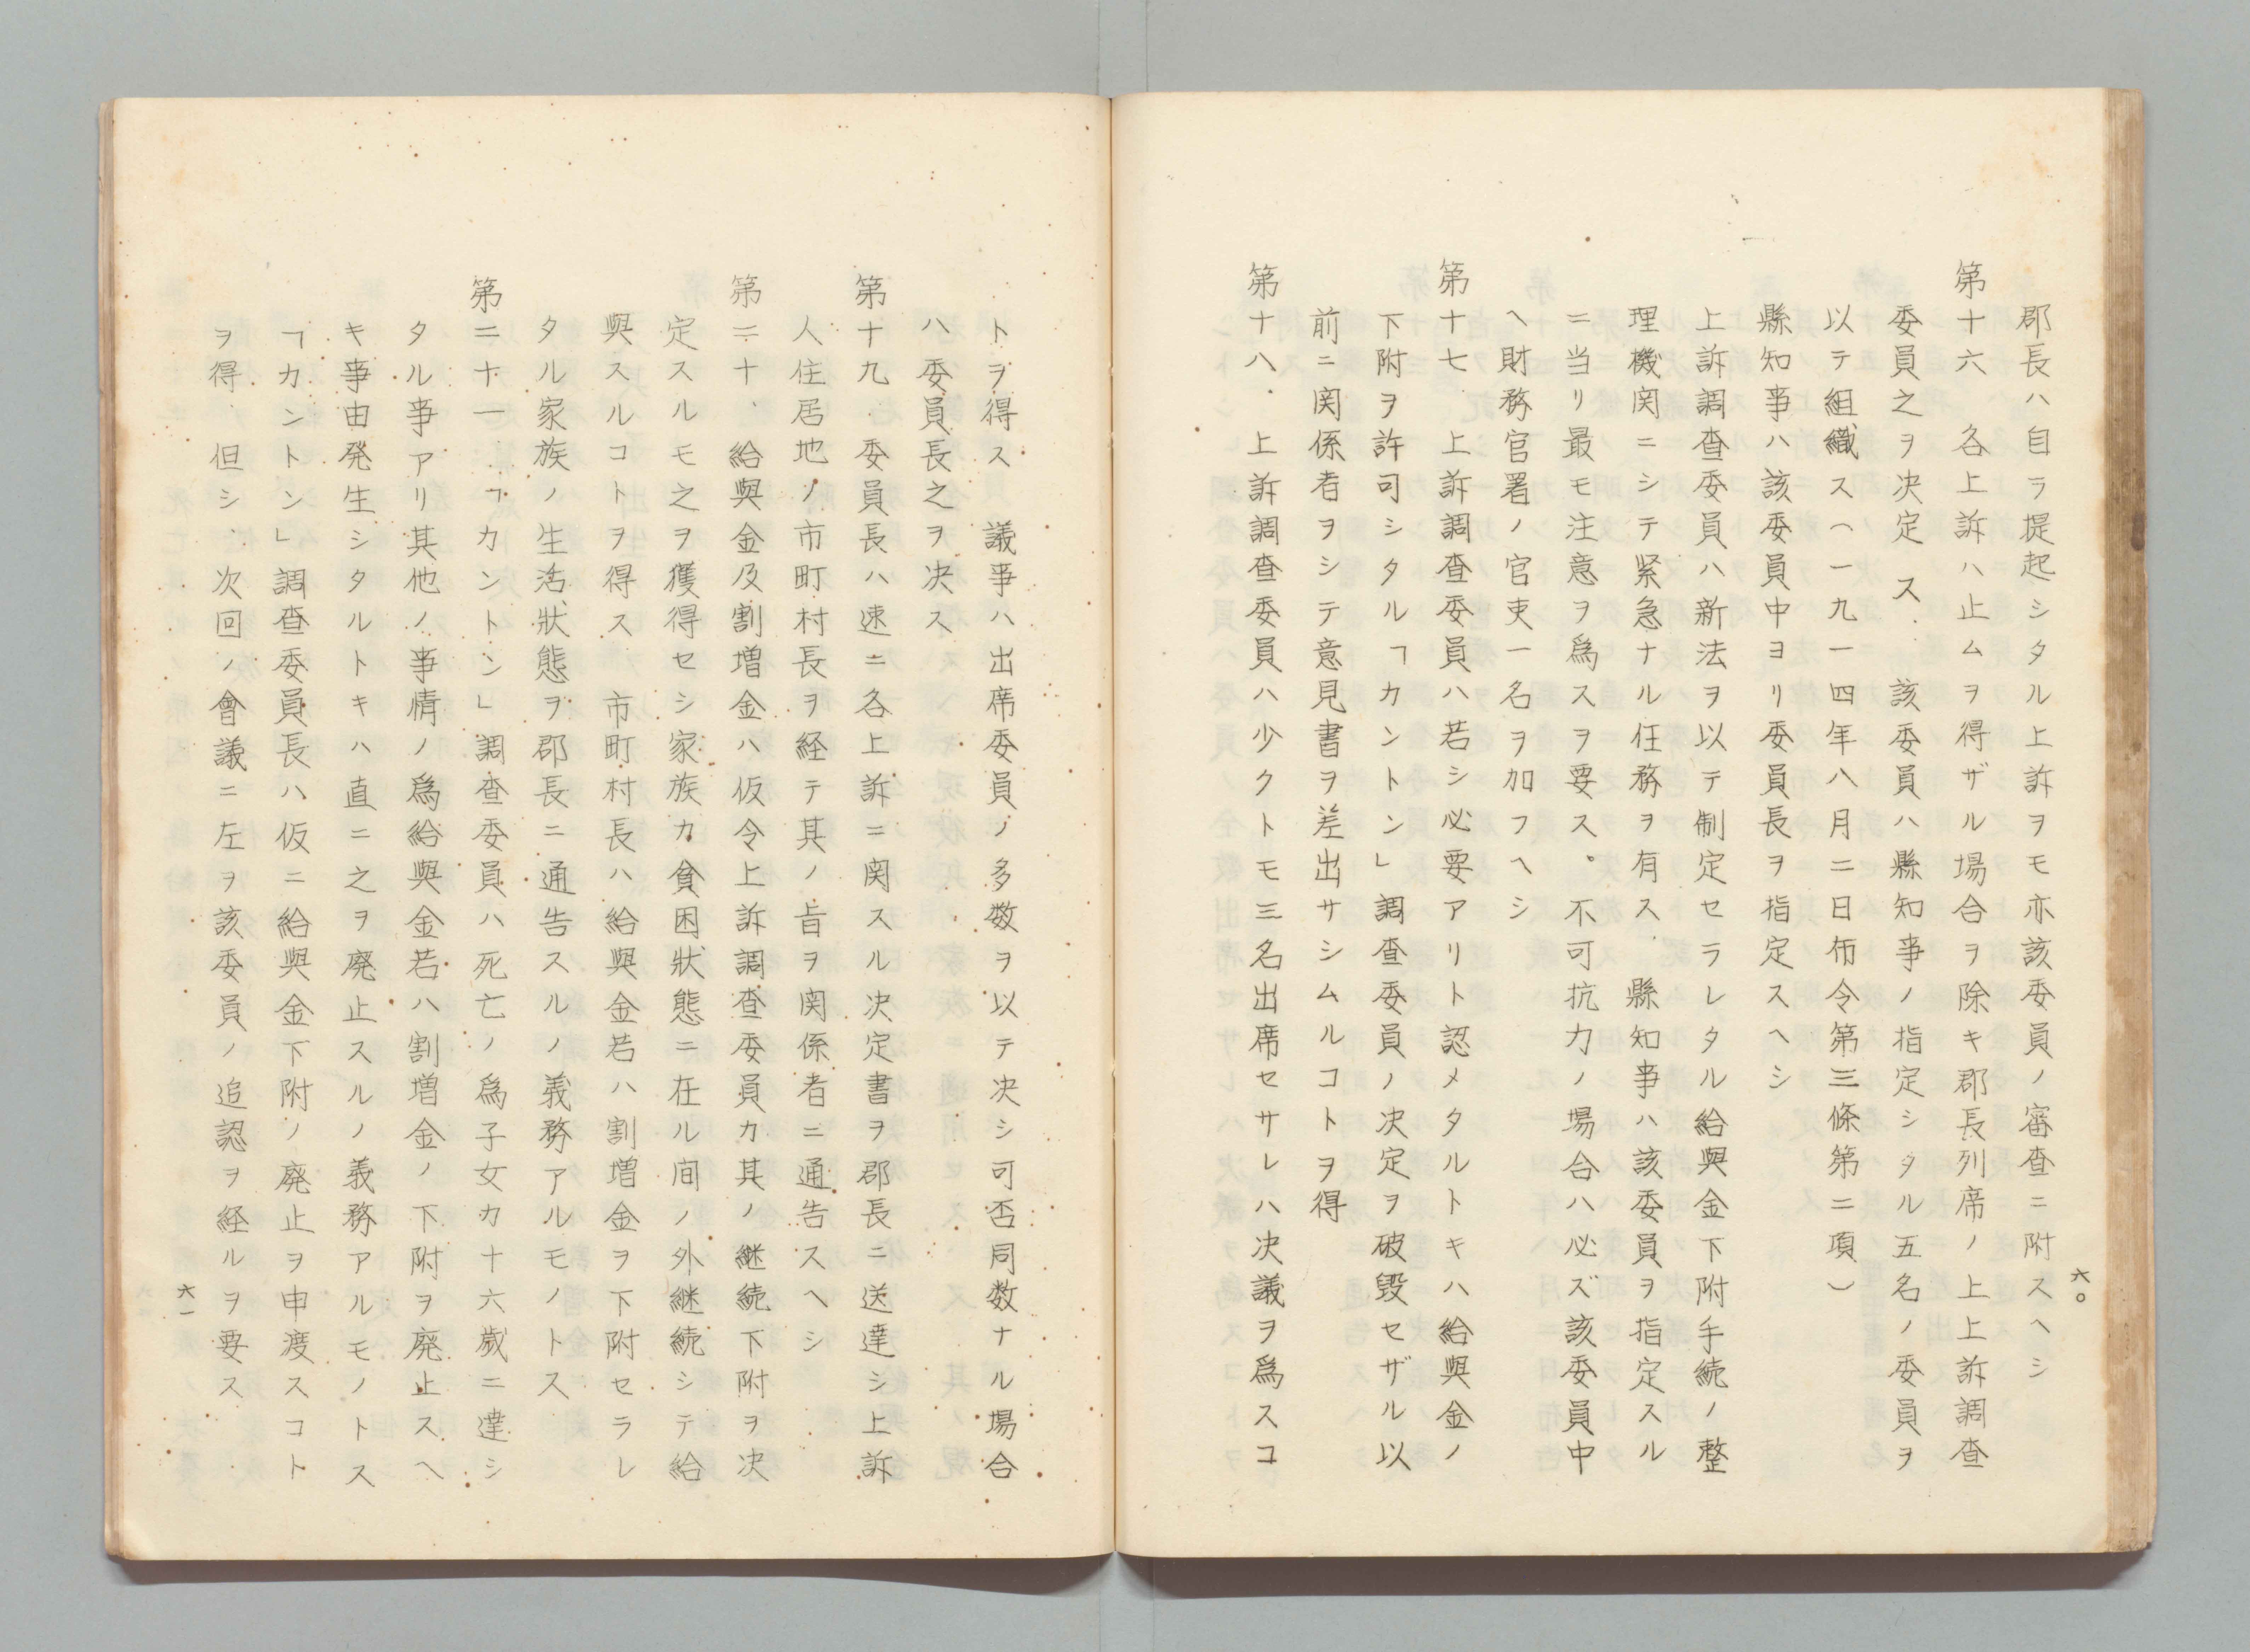 六〇
郡長ハ自ラ提起シタル上訴ヲモ亦該委員ノ審査ニ附スヘシ
第十六 各上訴ハ止ムヲ得ザル場合ヲ除キ郡長列席ノ上上訴調査
委員之ヲ决定ス. 該委員ハ縣知事ノ指定シタル五名ノ委員ヲ
以テ組織ス(一九一四年八月二日布令第三條第二項)
縣知事ハ該委員中ヨリ委員長ヲ指定スヘシ
上訴調査委員ハ新法ヲ以テ制定セラレタル給與金下附手続ノ整
理機関ニシテ緊急ナル任務ヲ有ス. 縣知事ハ該委員ヲ指定スル
ニ当リ最モ注意ヲ爲スヲ要ス。不可抗力ノ場合ハ必ズ該委員中
ヘ財務官署ノ官吏一名ヲ加フヘシ
第十七. 上訴調査委員ハ若シ必要アリト認メタルトキハ給與金ノ
下附ヲ許可シタル「カントン」調査委員ノ决定ヲ破毀セザル以
前ニ関係者ヲシテ意見書ヲ差出サシムルコトヲ得
第十八. 上訴調査委員ハ少クトモ三名出席セサレハ决議ヲ爲スコ
トヲ得ス 議事ハ出席委員ノ多数ヲ以テ决シ可否同数ナル場合
ハ委員長之ヲ决ス
第十九. 委員長ハ速ニ各上訴ニ関スル决定書ヲ郡長ニ送達シ上訴
人住居地ノ市町村長ヲ経テ其ノ旨ヲ関係者ニ通告スヘシ
第二十、給與金及割増金ハ仮令上訴調査委員カ其ノ継続下附ヲ决
定スルモ之ヲ獲得セシ家族カ貧困狀態ニ在ル间ノ外継続シテ給
與スルコトヲ得ス 市町村長ハ給與金若ハ割増金ヲ下附セラレ
タル家族ノ生活狀態ヲ郡長ニ通告スルノ義務アルモノトス
第二十一.「カントン」調査委員ハ死亡ノ爲子女カ十六歳ニ達シ
タル事アリ其他ノ事情ノ爲給與金若ハ割増金ノ下附ヲ廃止スヘ
キ事由発生シタルトキハ直ニ之ヲ廃止スルノ義務アルモノトス
「カントン」調査委員長ハ仮ニ給與金下附ノ廃止ヲ申渡スコト
ヲ得. 但シ、次回ノ會議ニ左ヲ該委員ノ追認ヲ経ルヲ要ス
六一